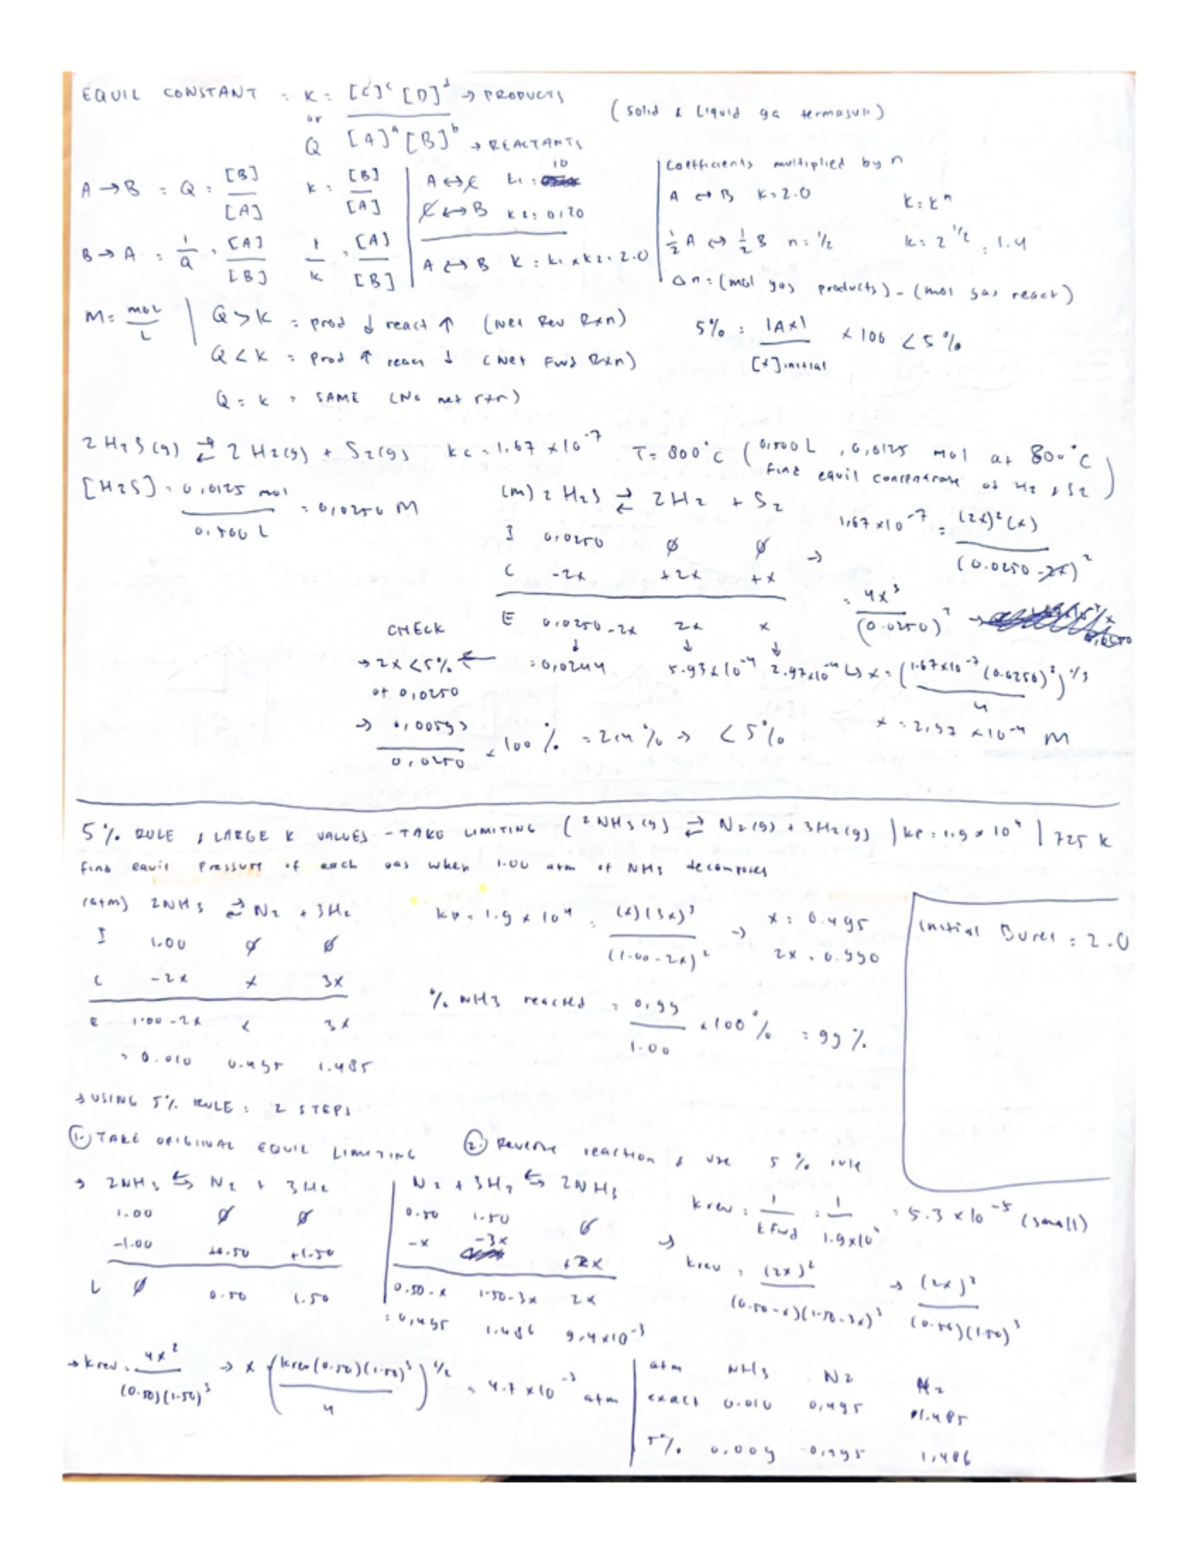 EQUIL CONSTANT = K = [C]ᶜ [D]ᵈ → PRODUCTS
or
Q [A]ᵃ [B]ᵇ → REACTANTS
(Solid & Liquid ga termasuk)
A → B = Q = [B] / [A] K = [B] / [A]
B → A = 1/Q = [A] / [B] 1/K = [A] / [B]
A ↔ C K1 = 10
C ↔ B K2 = 0,20
A ↔ B K = K1 x K2 = 2.0
Coefficients multiplied by n
A ↔ B K = 2.0 K = Kⁿ
½ A ↔ ½ B n = ½ K = 2^1/2 = 1.4
Δn = (mol gas products) - (mol gas react)
M = mol / L
Q > K = prod ↓ react ↑ (Net Rev Rxn)
Q < K = Prod ↑ reac ↓ (Net Fwd Rxn)
Q = K = SAME (No net rxn)
5% = |Δx| / [x] initial x 100 < 5%
2 H2S(g) ⇄ 2 H2(g) + S2(g) Kc = 1.67 x 10⁻⁷ T = 800°C (0,500 L, 0,0125 mol at 800°C
Find equil concentration of H2 & S2)
[H2S] = 0,0125 mol / 0,500 L = 0,0250 M
(M) 2 H2S ⇄ 2H2 + S2
I 0,0250 ∅ ∅
C -2x +2x +x
E 0,0250 - 2x 2x x
= 0,0244 5.93 x 10⁻⁴ 2.97x10⁻⁴
→ 1.67 x 10⁻⁷ = (2x)² (x) / (0.0250 - 2x)²
= 4x³ / (0.0250)²
↳ x = (1.67x10⁻⁷ (0.0250)² / 4)^1/3
x = 2,97 x 10⁻⁴ M
CHECK
→ 2x < 5% ←
of 0,0250
→ 0,00593 / 0,0250 x 100% = 2,4% → < 5%
5% RULE & LARGE K VALUES - TAKE LIMITING (2NH3(g) ⇄ N2(g) + 3H2(g) | Kp = 1.9 x 10⁴ | 725 K
Find equil Pressure of each gas when 1.00 atm of NH3 decomposes
(atm) 2NH3 ⇄ N2 + 3H2
I 1.00 ∅ ∅
C -2x x 3x
E 1.00 - 2x x 3x
= 0.010 0.495 1.485
Kp = 1.9 x 10⁴ = (x)(3x)³ / (1.00 - 2x)² → x = 0.495
2x = 0.990
% NH3 reacted = 0.99 / 1.00 x 100% = 99%
Initial Buret = 2.0
→ USING 5% RULE : 2 STEPS
① TAKE ORIGINAL EQUIL LIMITING
② Reverse reaction & use 5% rule
→ 2NH3 ⇆ N2 + 3H2
1.00 ∅ ∅
-1.00 +0.50 +1.50
L ∅ 0.50 1.50
N2 + 3H2 ⇆ 2NH3
0.50 1.50 ∅
-x -3x +2x
0.50 - x 1.50 - 3x 2x
= 0,495 1.486 9,4x10⁻³
Krev = 1 / Kfwd = 1 / 1.9x10⁴ = 5.3 x 10⁻⁵ (small)
→ Krev = (2x)² / (0.50 - x)(1.50 - 3x)³ → (2x)² / (0.50)(1.50)³
→ Krev = 4x² / (0.50)(1.50)³ → x = (Krev (0.50)(1.50)³ / 4)^1/2 = 4.7 x 10⁻³ atm
atm NH3 N2 H2
exact 0.010 0,495 1.485
5% 0.009 0,495 1,486